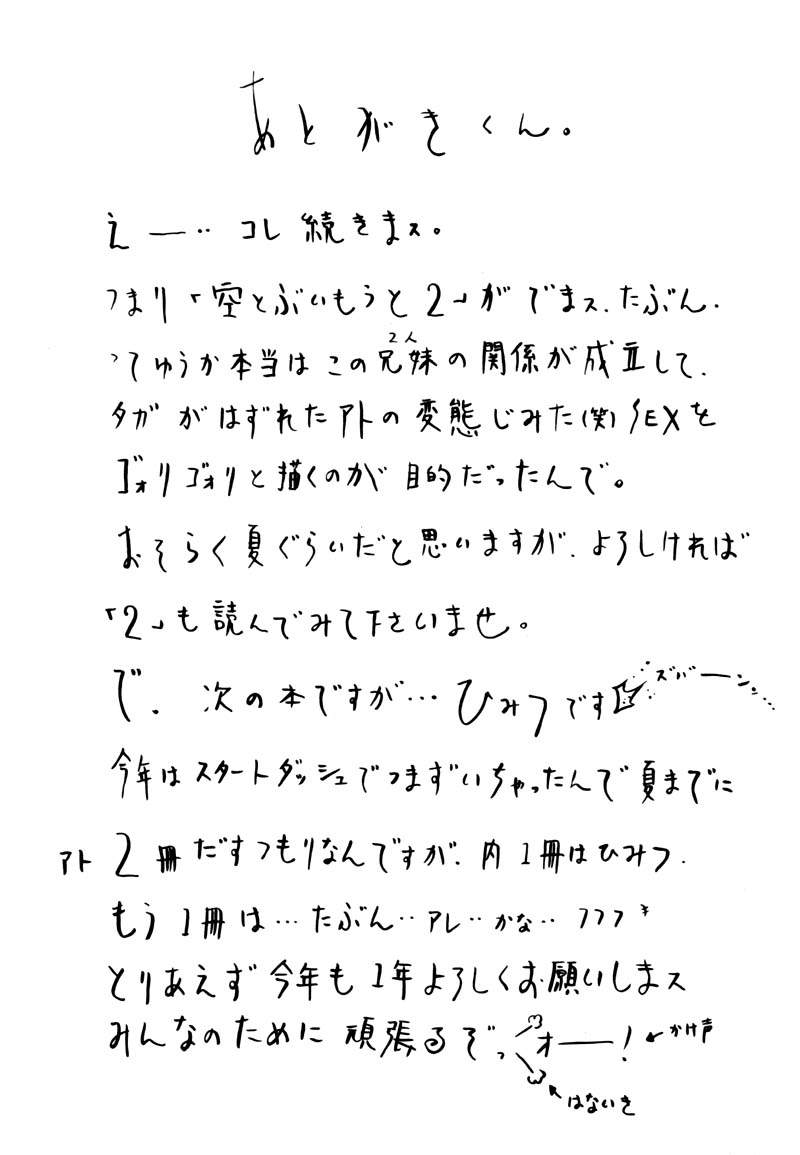 あとがきくん。
えー‥コレ続きまス。
つまり「空とぶいもうと2」がでまス、たぶん.
つてゆうか本当はこの兄妹の関係が成立して、
2人
タガがはずれたアトの変態じみた(笑)SEXを
ゴォリゴォリと描くのが目的だったんで。
おそらく夏ぐらいだと思いますが、よろしければ
「2」も読んでみて下さいませ。
で、次の本ですが…ひみつです
ズバーン。…
今年はスタートダッシュでつまずいちゃったんで夏までに
アト2冊だすつもりなんですが、内1冊はひみつ.
もう1冊は…たぶん‥アレ‥かな‥フフフ
とりあえず今年も1年よろしくお願いしまス
みんなのために頑張るぞっオー!
かけ声
はないき